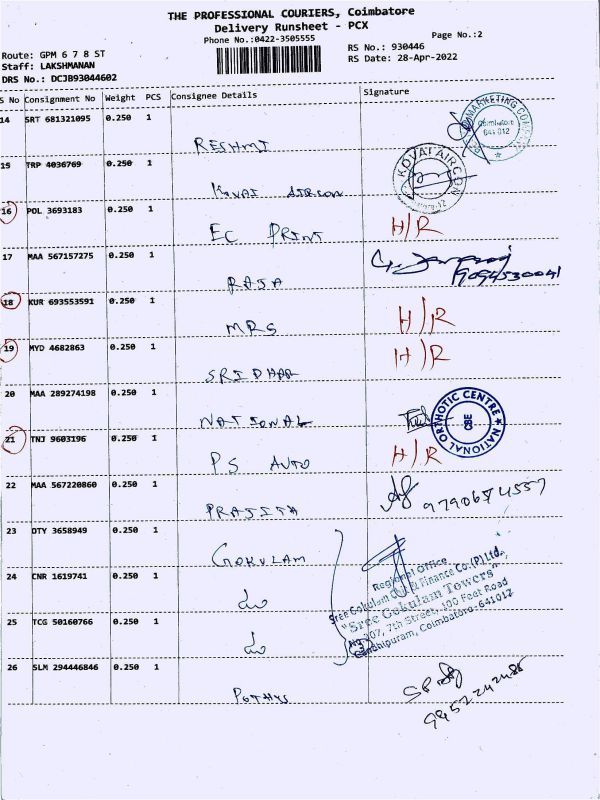 THE PROFESSIONAL COURIERS, Coimbatore
Delivery Runsheet - PCX
Phone No.:0422-3505555
Page No.:2
Route: GPM 6 7 8 ST
RS No.: 930446
Staff: LAKSHMANAN
RS Date: 28-Apr-2022
DRS No.: DCJB93044602
S No Consignment No Weight PCS Consignee Details Signature
14 SRT 681321095 0.250 1
MARKETING
Coimbatore
641 012
RESHMI
15 TRP 4036769 0.250 1
KOVAI AIRCON
KOVAI AIRCON
16 POL 3693183 0.250 1
EC PRINT H/R
17 MAA 567157275 0.250 1
RAJA 9094530041
18 KUR 693553591 0.250 1
MRS H/R
19 MYD 4682863 0.250 1 H/R
SRIDHAR
20 MAA 289274198 0.250 1
NATIONAL
NATIONAL ORTHOTIC CENTRE
CBE
21 TNJ 9603196 0.250 1
PS AUTO H/R
22 MAA 567220860 0.250 1
PRAJITA 9790674557
23 DTY 3658949 0.250 1
GOKULAM
Regional Office
24 CNR 1619741 0.250 1
do
Sree Gokulam Chit & Finance Co.(P) Ltd.,
"Sree Gokulam Towers"
25 TCG 50160766 0.250 1
do
207, 7th Street, 100 Feet Road
Gandhipuram, Coimbatore-641012
26 SLM 294446846 0.250 1
POTHYS